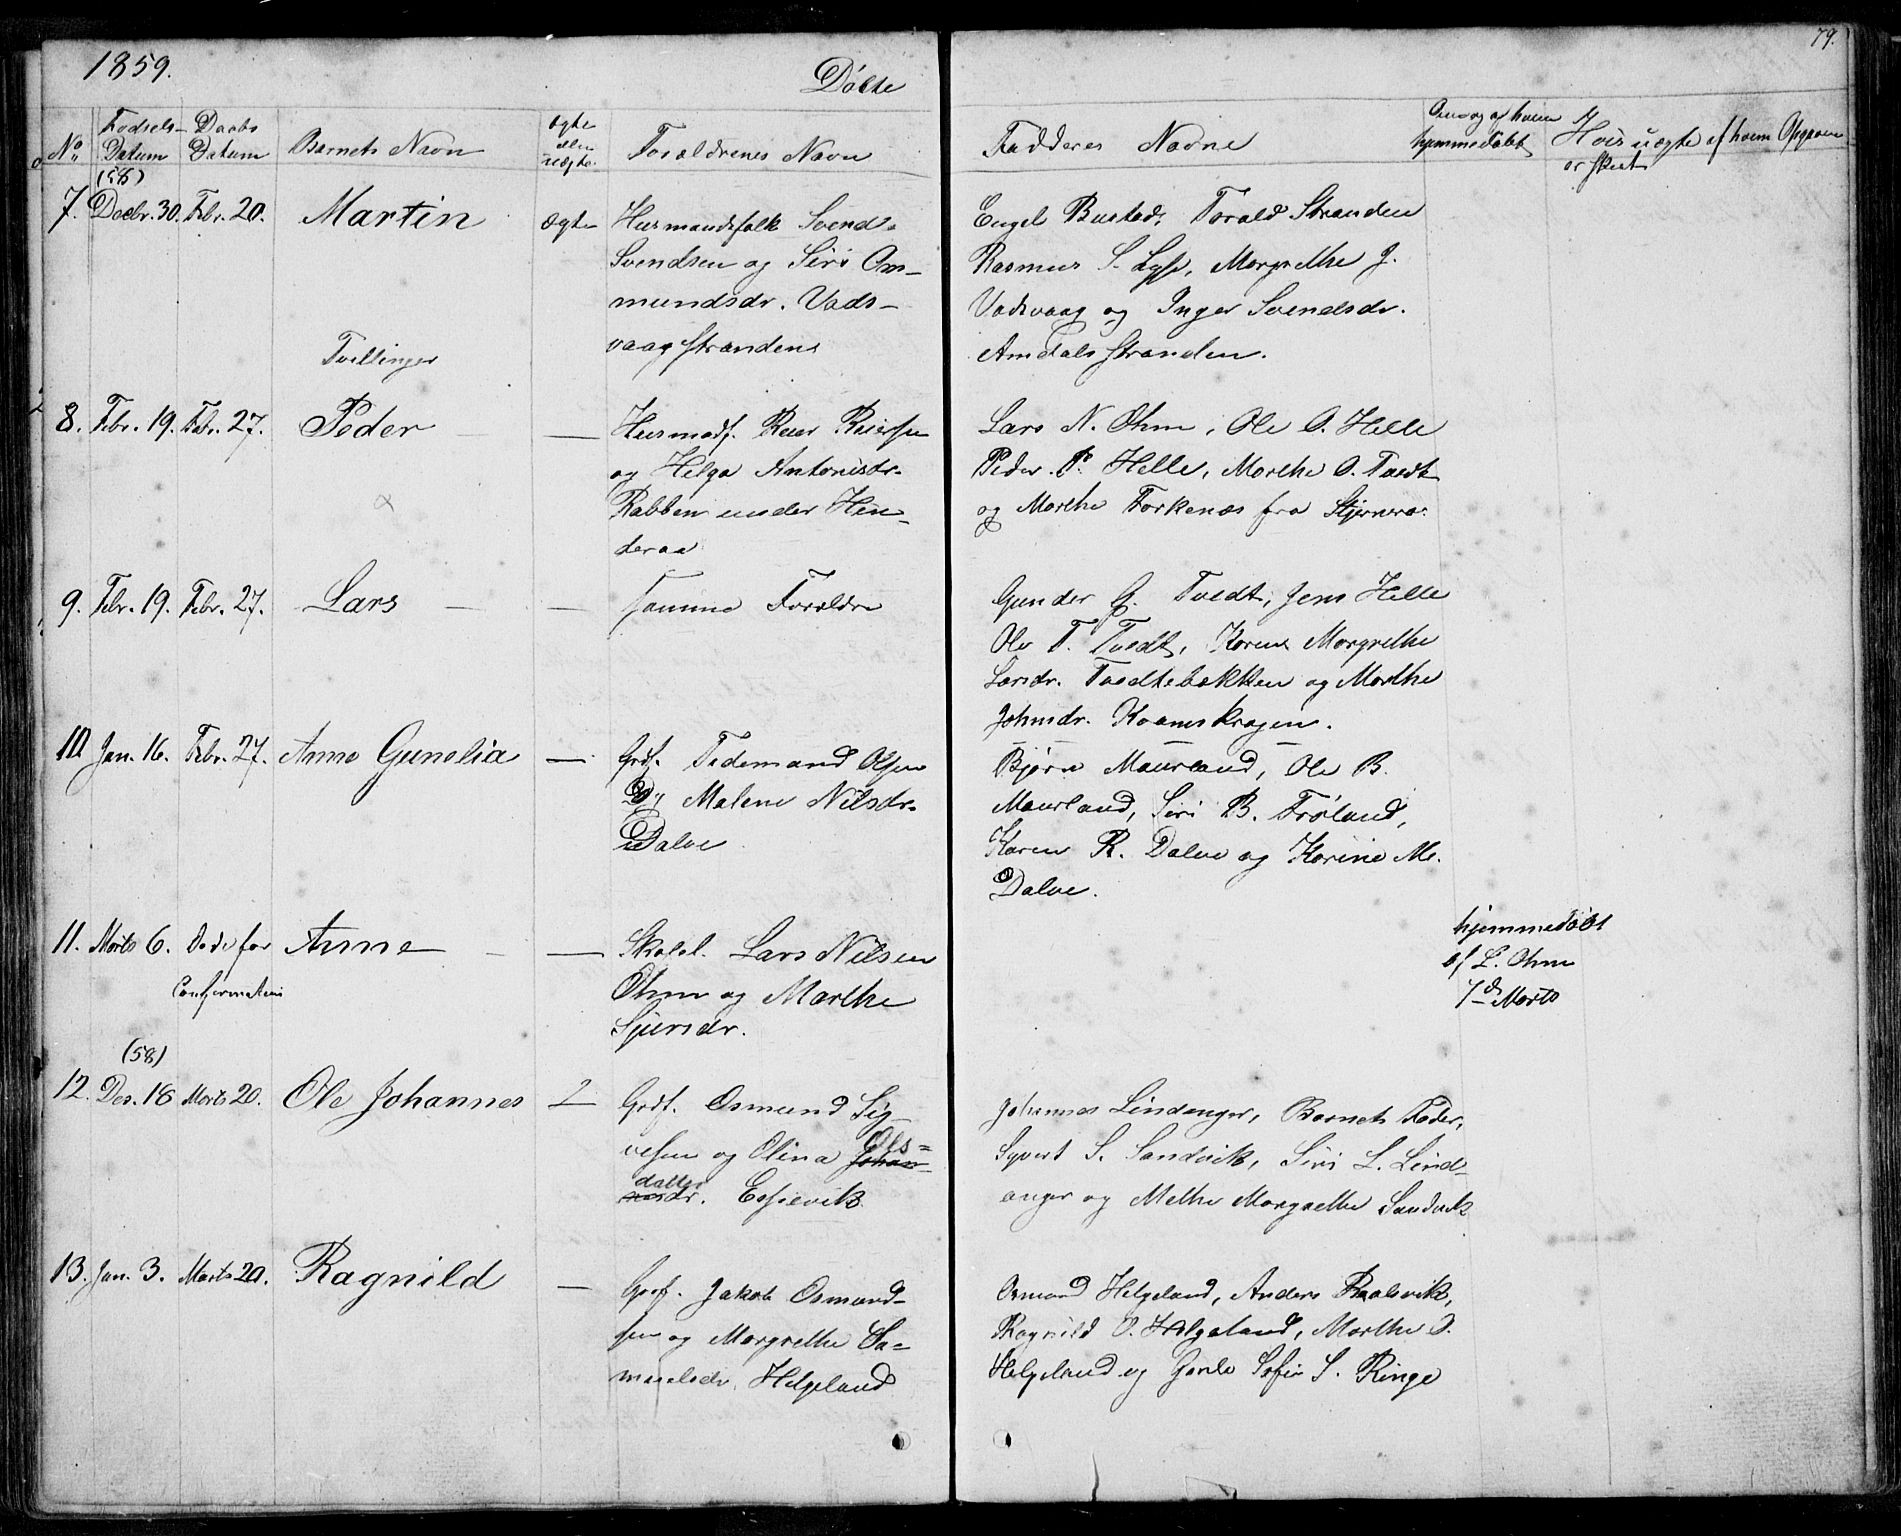 1859.
Döbte
79.
No. Fødsels-Datum Daabs Datum Barnets Navn ægte ellen uægte. Forældrenes Navn Faddernes Navne Om og af hvem hjemmedøbt Hvis uægte, af hvem Opgaven er skeet
(58)
7. Decbr. 30. Febr. 20. Martin ægte Huusmandsfolk Svend
Svendsen og Siri Om-
mundsdr. Vads-
vaagstranden
Engel Busted, Torald Stranden
Rasmus S. Lyse, Morgrethe J.
Vadsvaag og Inger Svendsdr.
Amdalsstranden.
Tvillinger
8. Febr. 19. Febr. 27. Peder — Huusmdf. Reier Reiersen
og Helga Antonisdr.
Rabben under Hin-
deraa
Lars N. Ohm, Ole O. Helle
Peder P. Helle, Marthe O. Tvedt
og Marthe Torkenæs fra Stjernerø.
9. Febr. 19. Febr. 27. Lars — samme Forældre
Gunder G. Tvedt, Jens Helle
Ole T. Tvedt, Karen Morgrethe
Larsdr. Tvedtebakken og Marthe
Johnsdr. Kvamskragen.
10. Jan. 16. Febr. 27. Anne Gunelia — Grdf. Tedemand Olsen
og Malene Nilsdr.
Dalve
Bjørn Maurland, Ole B.
Maurland, Siri B. Frøland,
Karen R. Dalve og Karine M.
Dalve.
11. Marts 6. Døde før Confirmation Anne — Skolel. Lars Nilsen
Ohm og Marthe
Sjursdr.
hjemmedøbt
af L. Ohm
7d Marts
(58)
12. Des. 18 Marts 20. Ole Johannes 2 Grdf. Osmund Sig-
vesen og Olina Johan- Ols=
nesdr. datter Essevik
Johannes Lindanger, Barnets Fader,
Syvert S. Sandvik, Siri L. Lind-
anger og Methe Morgrethe Sandvik
13. Jan. 3. Marts 20. Ragnild — Grdf. Jakob Osmund-
sen og Morgrethe Sa-
muelsdr. Helgeland
Osmund Helgeland, Anders Raalsvik,
Ragnild O. Helgeland, Marthe O.
Helgeland og Sofie S. Ringe